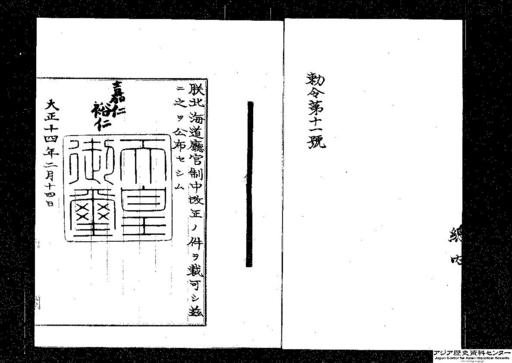 勅令第十一號
朕北海道廳官制中改正ノ件ヲ裁可シ茲
ニ之ヲ公布セシム
嘉仁
裕仁
天皇
御璽
大正十四年二月十四日
アジア歴史資料センター
Japan Center for Asian Historical Records